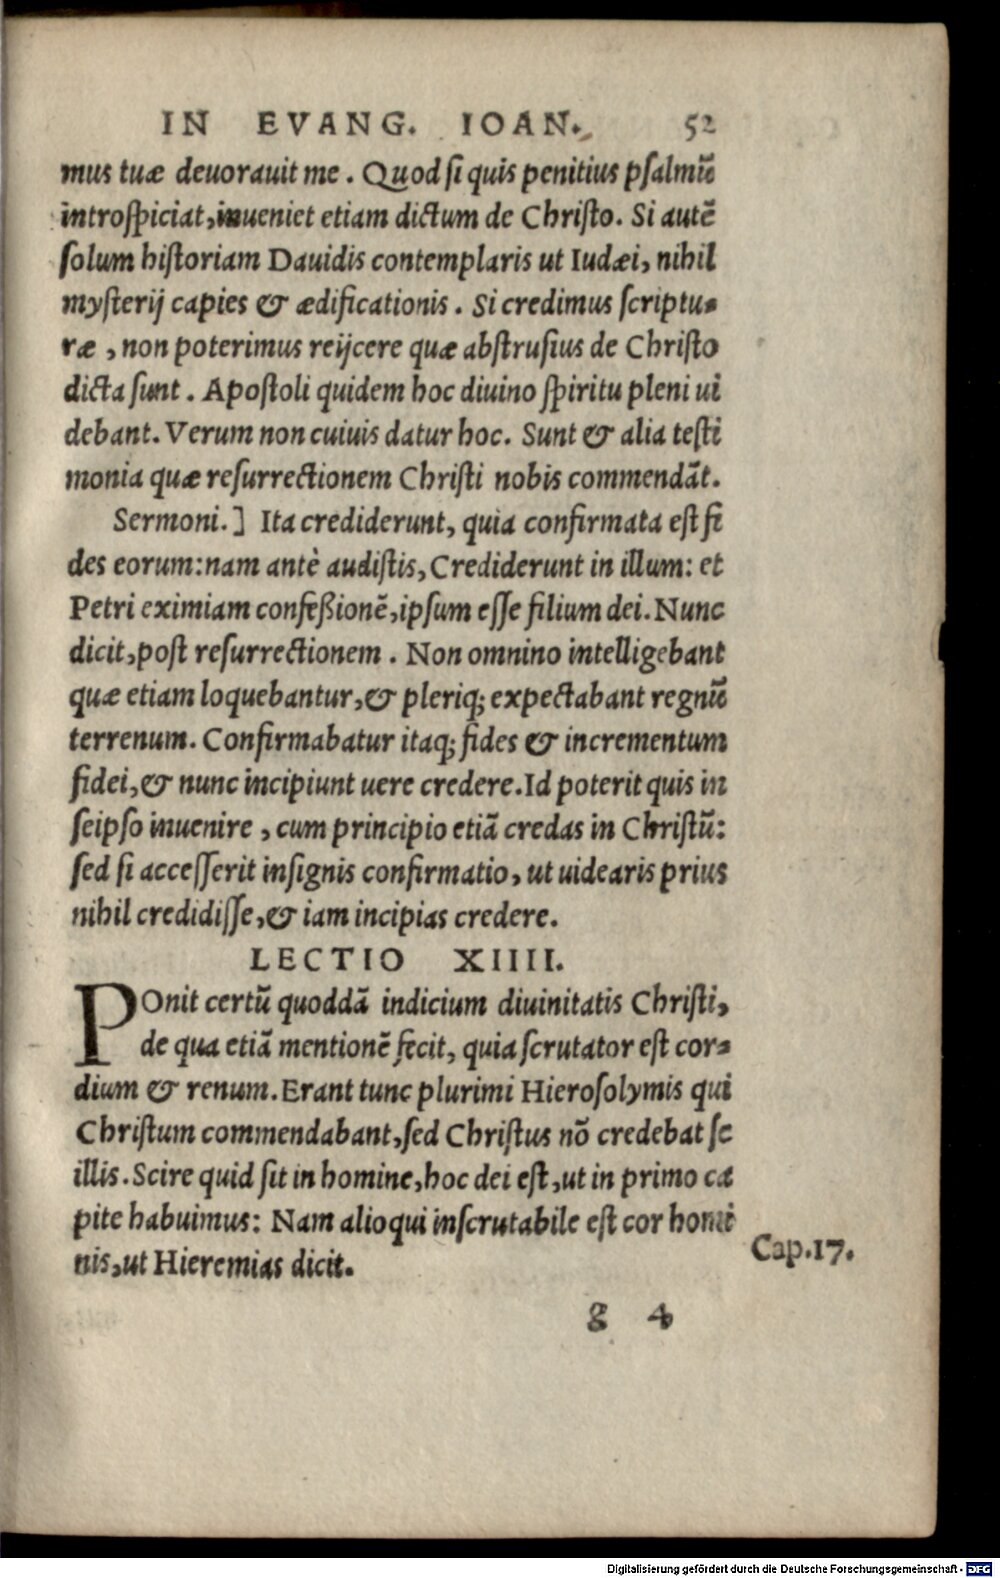 IN EVANG. IOAN. 52
mus tuæ deuorauit me. Quod si quis penitius psalmũ
introspiciat, inueniet etiam dictum de Christo. Si autẽ
solum historiam Dauidis contemplaris ut Iudæi, nihil
mysterij capies & ædificationis. Si credimus scriptu-
ræ, non poterimus reijcere quæ abstrusius de Christo
dicta sunt. Apostoli quidem hoc diuino spiritu pleni ui
debant. Verum non cuiuis datur hoc. Sunt & alia testi
monia quæ resurrectionem Christi nobis commendãt.
Sermoni.] Ita crediderunt, quia confirmata est fi
des eorum: nam antè audistis, Crediderunt in illum: et
Petri eximiam confeßionẽ, ipsum esse filium dei. Nunc
dicit, post resurrectionem. Non omnino intelligebant
quæ etiam loquebantur, & pleriq; expectabant regnũ
terrenum. Confirmabatur itaq; fides & incrementum
fidei, & nunc incipiunt uere credere. Id poterit quis in
seipso inuenire, cum principio etiã credas in Christũ:
sed si accesserit insignis confirmatio, ut uidearis prius
nihil credidisse, & iam incipias credere.
LECTIO XIIII.
POnit certũ quoddã indicium diuinitatis Christi,
de qua etiã mentionẽ fecit, quia scrutator est cor-
dium & renum. Erant tunc plurimi Hierosolymis qui
Christum commendabant, sed Christus nõ credebat se
illis. Scire quid sit in homine, hoc dei est, ut in primo ca
pite habuimus: Nam alioqui inscrutabile est cor homi
nis, ut Hieremias dicit.
Cap.17.
g 4
Digitalisierung gefördert durch die Deutsche Forschungsgemeinschaft - DFG